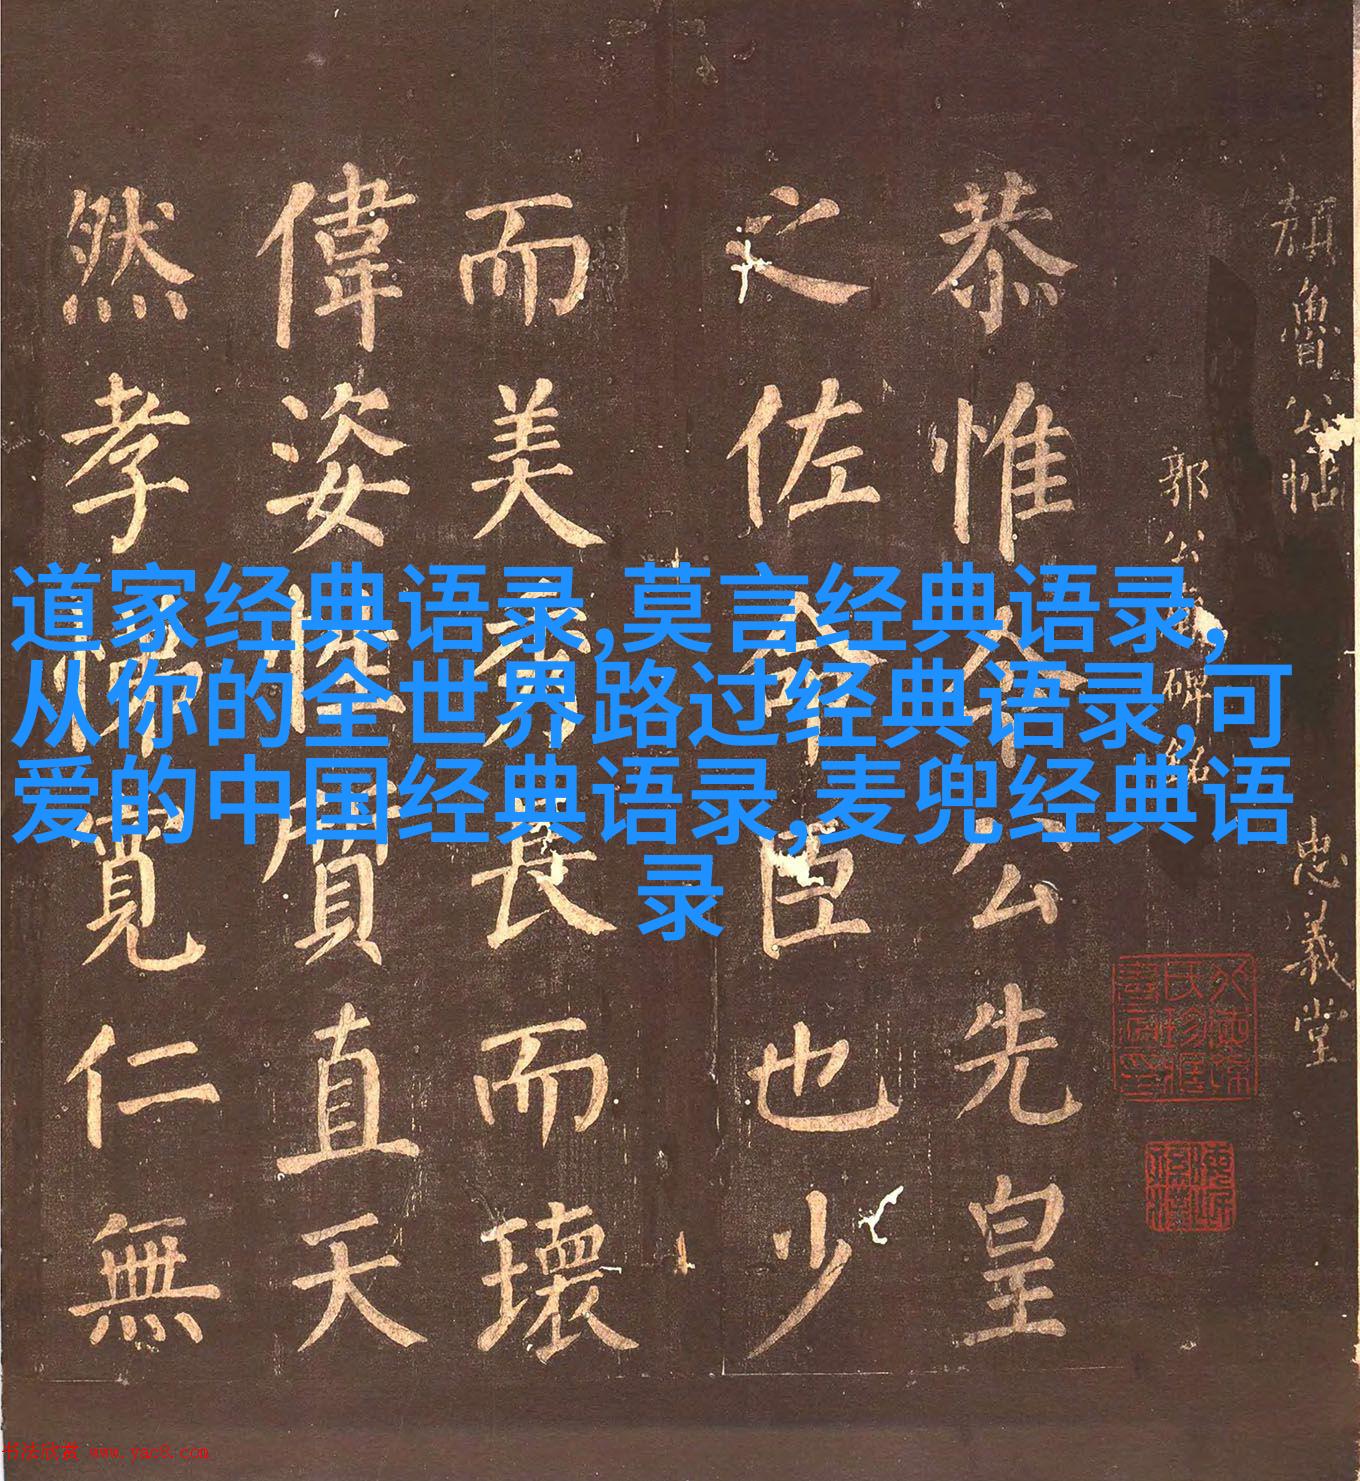 道家经典语录,莫言经典语录,
从你的全世界路过经典语录,可
爱的中国经典语录,麦兜经典语
录
顏魯公帖
忠義堂
郭公碑銘
恭惟令公先皇
之佐命臣也少
而美秀長而瓌
偉姿性質直天
然孝悌寬仁無
书法欣赏 www.yac8.com